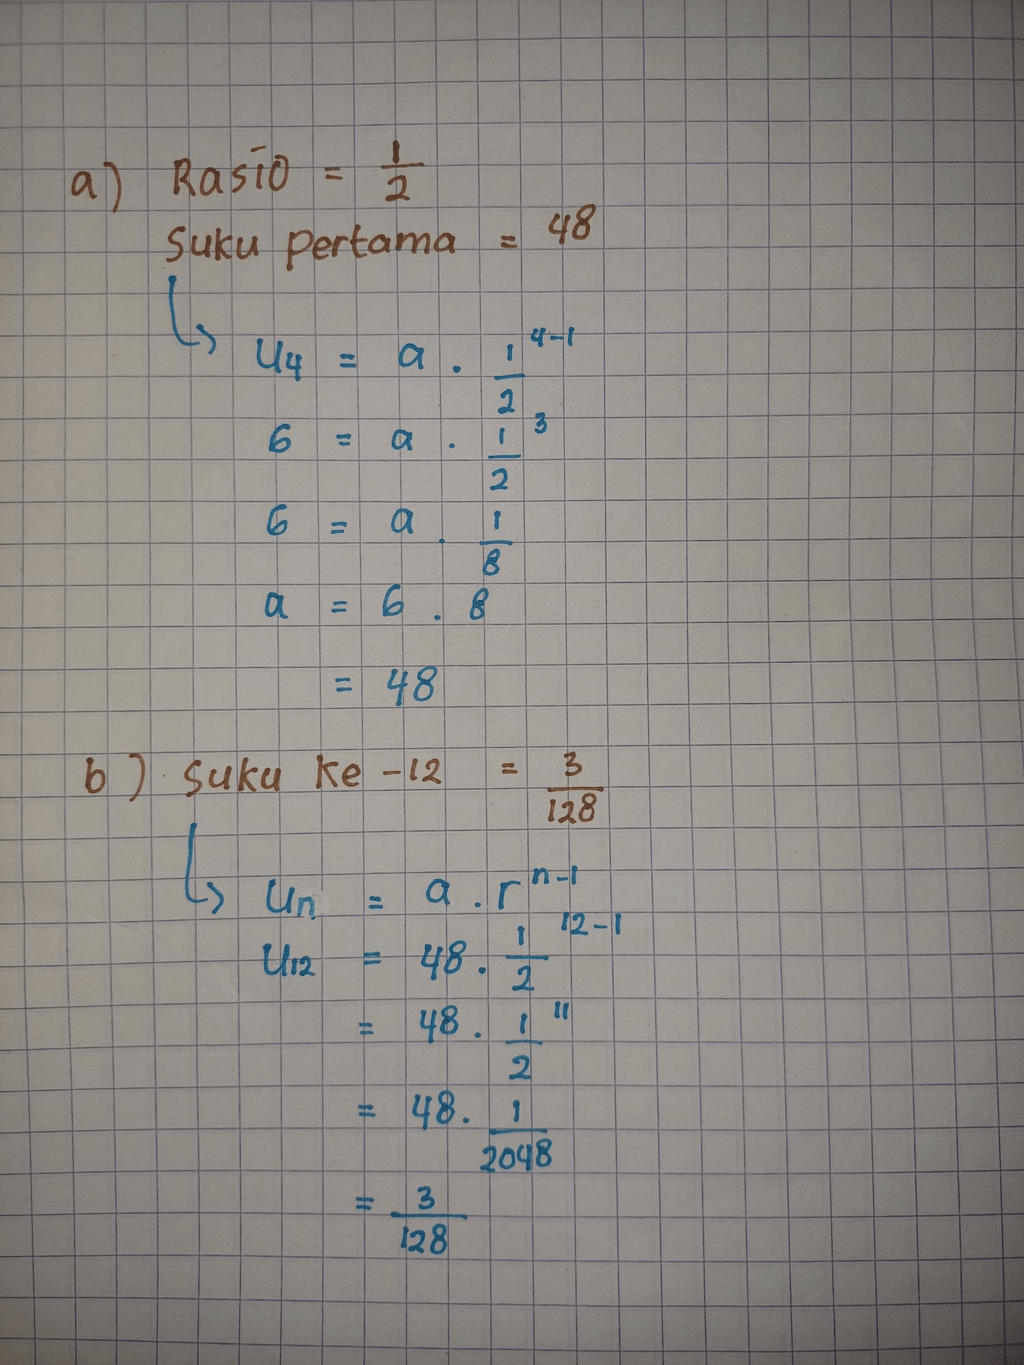 a) Rasio = 1/2
Suku pertama = 48
U4 = a . 1/2 ^4-1
6 = a . 1/2 ^3
6 = a . 1/8
a = 6 . 8
= 48
b) Suku ke -12 = 3/128
Un = a . r^n-1
U12 = 48 . 1/2 ^12-1
= 48 . 1/2 ^11
= 48 . 1/2048
= 3/128